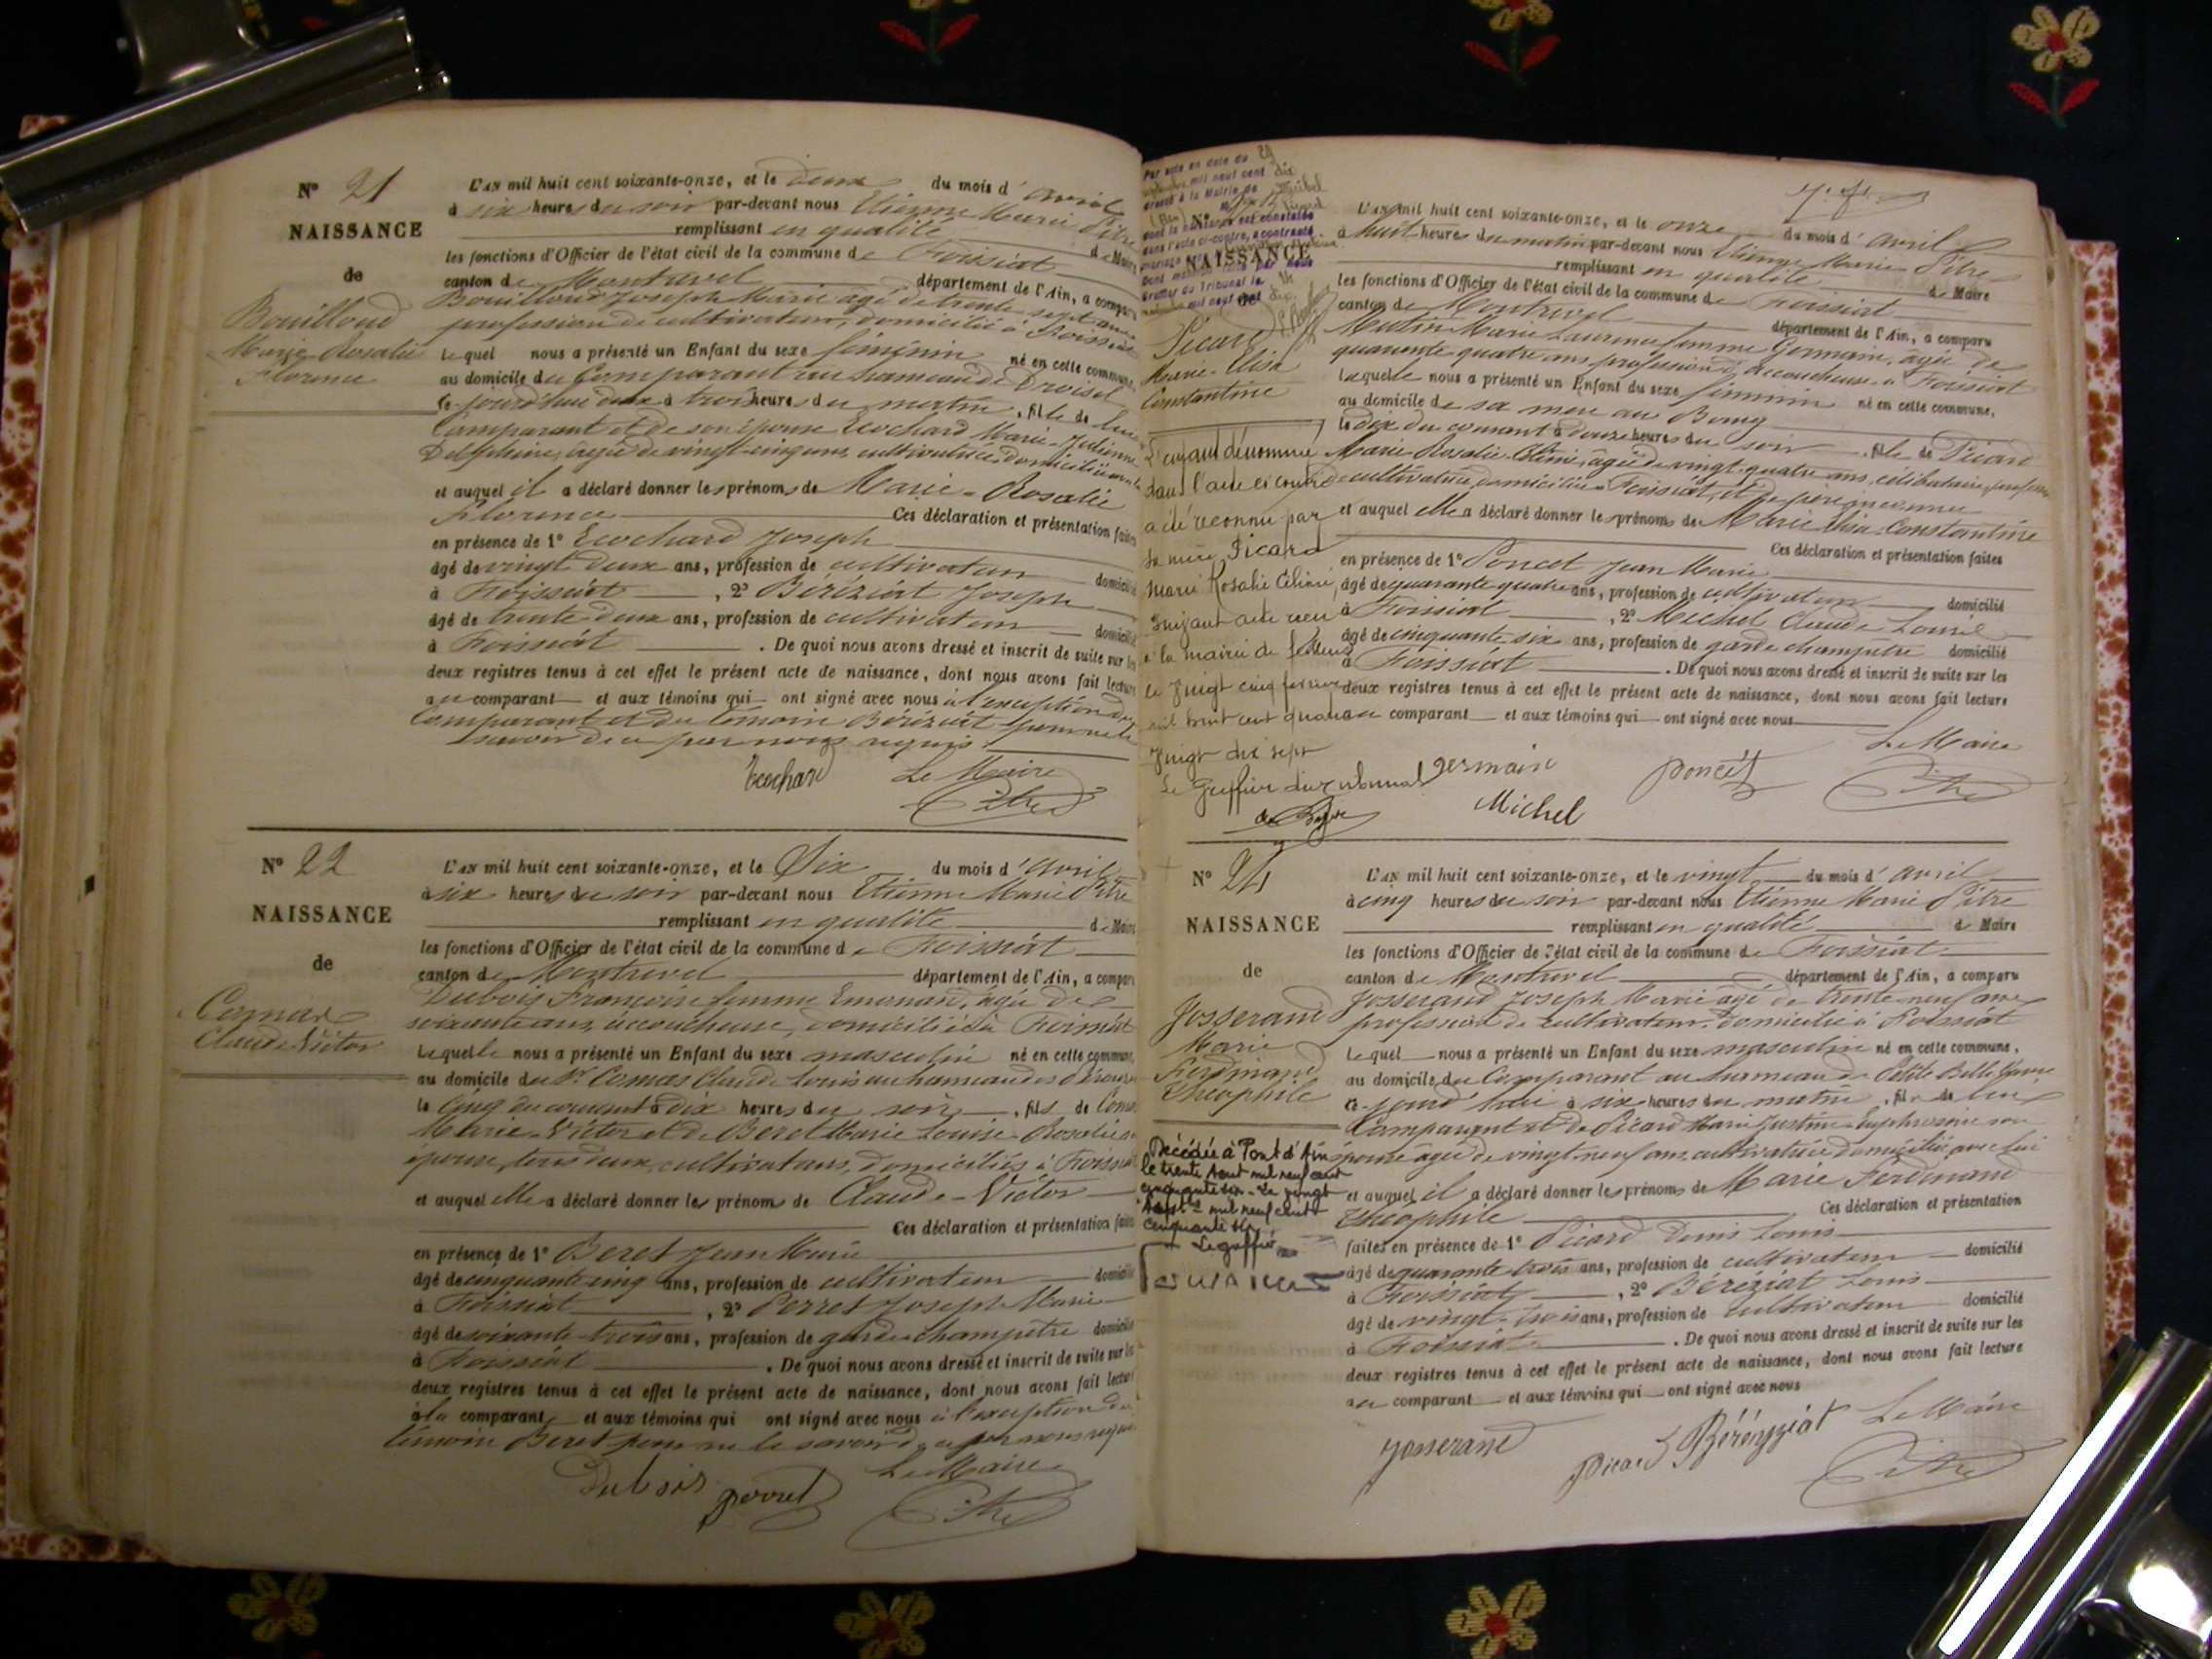 N° 21
NAISSANCE
de
Bouilloud
Marie Rosalie
Florence
L'AN mil huit cent soixante-onze, et le deux du mois d'avril
à six heures du soir par-devant nous Etienne Marie Pitre
remplissant en qualité de Maire
les fonctions d'Officier de l'état civil de la commune de Foissiat
canton de Montrevel département de l'Ain, a comparu
Bouilloud Joseph Marie âgé de trente sept ans
profession de cultivateur, domicilié à Foissiat
Lequel nous a présenté un Enfant du sexe féminin né en cette commune,
au domicile du Comparant au hameau de
ce jourd'hui deux à trois heures du matin, fille de lui
Comparant et de son épouse Ecochard Marie Julienne
Delphine, âgée de vingt-cinq ans, cultivatrice, domiciliée
et auquel il a déclaré donner les prénoms de Marie-Rosalie
Florence Ces déclaration et présentation faites
en présence de 1° Ecochard Joseph
âgé de vingt deux ans, profession de cultivateur domicilié
à Foissiat, 2° Béréziat Joseph
âgé de trente deux ans, profession de cultivateur domicilié
à Foissiat. De quoi nous avons dressé et inscrit de suite sur les
deux registres tenus à cet effet le présent acte de naissance, dont nous avons fait lecture
au comparant et aux témoins qui ont signé avec nous à l'exception du
Comparant et du témoin Béréziat pour ne le
savoir de ce par nous requis
Ecochard Le Maire
Pitre
N° 22
NAISSANCE
de
Comas
Claude Victor
L'AN mil huit cent soixante-onze, et le Six du mois d'avril
à six heures du soir par-devant nous Etienne Marie Pitre
remplissant en qualité de Maire
les fonctions d'Officier de l'état civil de la commune de Foissiat
canton de Montrevel département de l'Ain, a comparu
Dubois Françoise femme, âgée de
soixante ans, accoucheuse, domiciliée à Foissiat
Laquelle nous a présenté un Enfant du sexe masculin né en cette commune,
au domicile du Sr Comas Claude Louis au hameau des
le Cinq du courant à dix heures du soir, fils de Comas
Marie Victor et de Beret Marie Louise Rosalie son
épouse, tous deux cultivateurs, domiciliés à Foissiat
et auquel elle a déclaré donner les prénoms de Claude-Victor
Ces déclaration et présentation faites
en présence de 1° Beret Jean Marie
âgé de cinquante cinq ans, profession de cultivateur domicilié
à Foissiat, 2° Perret Joseph Marie
âgé de soixante trois ans, profession de garde champêtre domicilié
à Foissiat. De quoi nous avons dressé et inscrit de suite sur les
deux registres tenus à cet effet le présent acte de naissance, dont nous avons fait lecture
à la comparant et aux témoins qui ont signé avec nous à l'exception du
témoin Beret pour ne le savoir de ce par nous requis
Dubois Perret Le Maire
Pitre
Par acte en date du 29
mil neuf cent dix
dressé à la Mairie de
dont la naissance est constatée
dans l'acte ci-contre, a contracté
mariage
NAISSANCE
de
Picard
Marie-Elisa
Constantine
L'enfant dénommé
dans l'acte ci contre
a été reconnu par
sa mère, Picard
Marie Rosalie Célinie,
suivant acte reçu
à la mairie de
le vingt cinq février
mil huit cent quatre
vingt dix sept
Le Greffier du tribunal
L'AN mil huit cent soixante-onze, et le onze du mois d'avril
à huit heures du matin par-devant nous Etienne Marie Pitre
remplissant en qualité de Maire
les fonctions d'Officier de l'état civil de la commune de Foissiat
canton de Montrevel département de l'Ain, a comparu
Marie Laurence femme Germain, âgée de
quarante quatre ans profession d'accoucheuse à Foissiat
Laquelle nous a présenté un Enfant du sexe féminin né en cette commune,
au domicile de sa mère au Bourg
le dix du courant à douze heures du soir, fille de Picard
Marie-Rosalie-Célinie, âgée de vingt-quatre ans, célibataire, profession
de cultivatrice, domiciliée à Foissiat, et de père inconnu
et auquel elle a déclaré donner les prénoms de Marie Elisa Constantine
Ces déclaration et présentation faites
en présence de 1° Poncet Jean Marie
âgé de quarante quatre ans, profession de cultivateur domicilié
à Foissiat, 2° Michel Claude Louis
âgé de cinquante six ans, profession de garde champêtre domicilié
à Foissiat. De quoi nous avons dressé et inscrit de suite sur les
deux registres tenus à cet effet le présent acte de naissance, dont nous avons fait lecture
au comparant et aux témoins qui ont signé avec nous
Le Maire
Germain Poncet Pitre
Michel
N° 24
NAISSANCE
de
Josserand
Marie
Ferdinand
Théophile
Décédée à Pont d'Ain
le trente Aout mil neuf cent
Le greffier
L'AN mil huit cent soixante-onze, et le vingt du mois d'avril
à cinq heures du soir par-devant nous Etienne Marie Pitre
remplissant en qualité de Maire
les fonctions d'Officier de l'état civil de la commune de Foissiat
canton de Montrevel département de l'Ain, a comparu
Josserand Joseph Marie âgé de trente-neuf ans
profession de cultivateur, domicilié à Foissiat
Lequel nous a présenté un Enfant du sexe masculin né en cette commune,
au domicile du Comparant au hameau de Petite
ce jourd'hui à six heures du matin, fils de lui
Comparant et de Picard Marie Justine Euphrosine son
épouse âgée de vingt neuf ans, cultivatrice domiciliée avec lui
et auquel il a déclaré donner les prénoms de Marie Ferdinand
Théophile Ces déclaration et présentation
faites en présence de 1° Picard Denis Louis
âgé de quarante trois ans, profession de cultivateur domicilié
à Foissiat, 2° Béréziat Louis
âgé de vingt-trois ans, profession de cultivateur domicilié
à Foissiat. De quoi nous avons dressé et inscrit de suite sur les
deux registres tenus à cet effet le présent acte de naissance, dont nous avons fait lecture
au comparant et aux témoins qui ont signé avec nous
Josserand Picard Béréziat Le Maire
Pitre